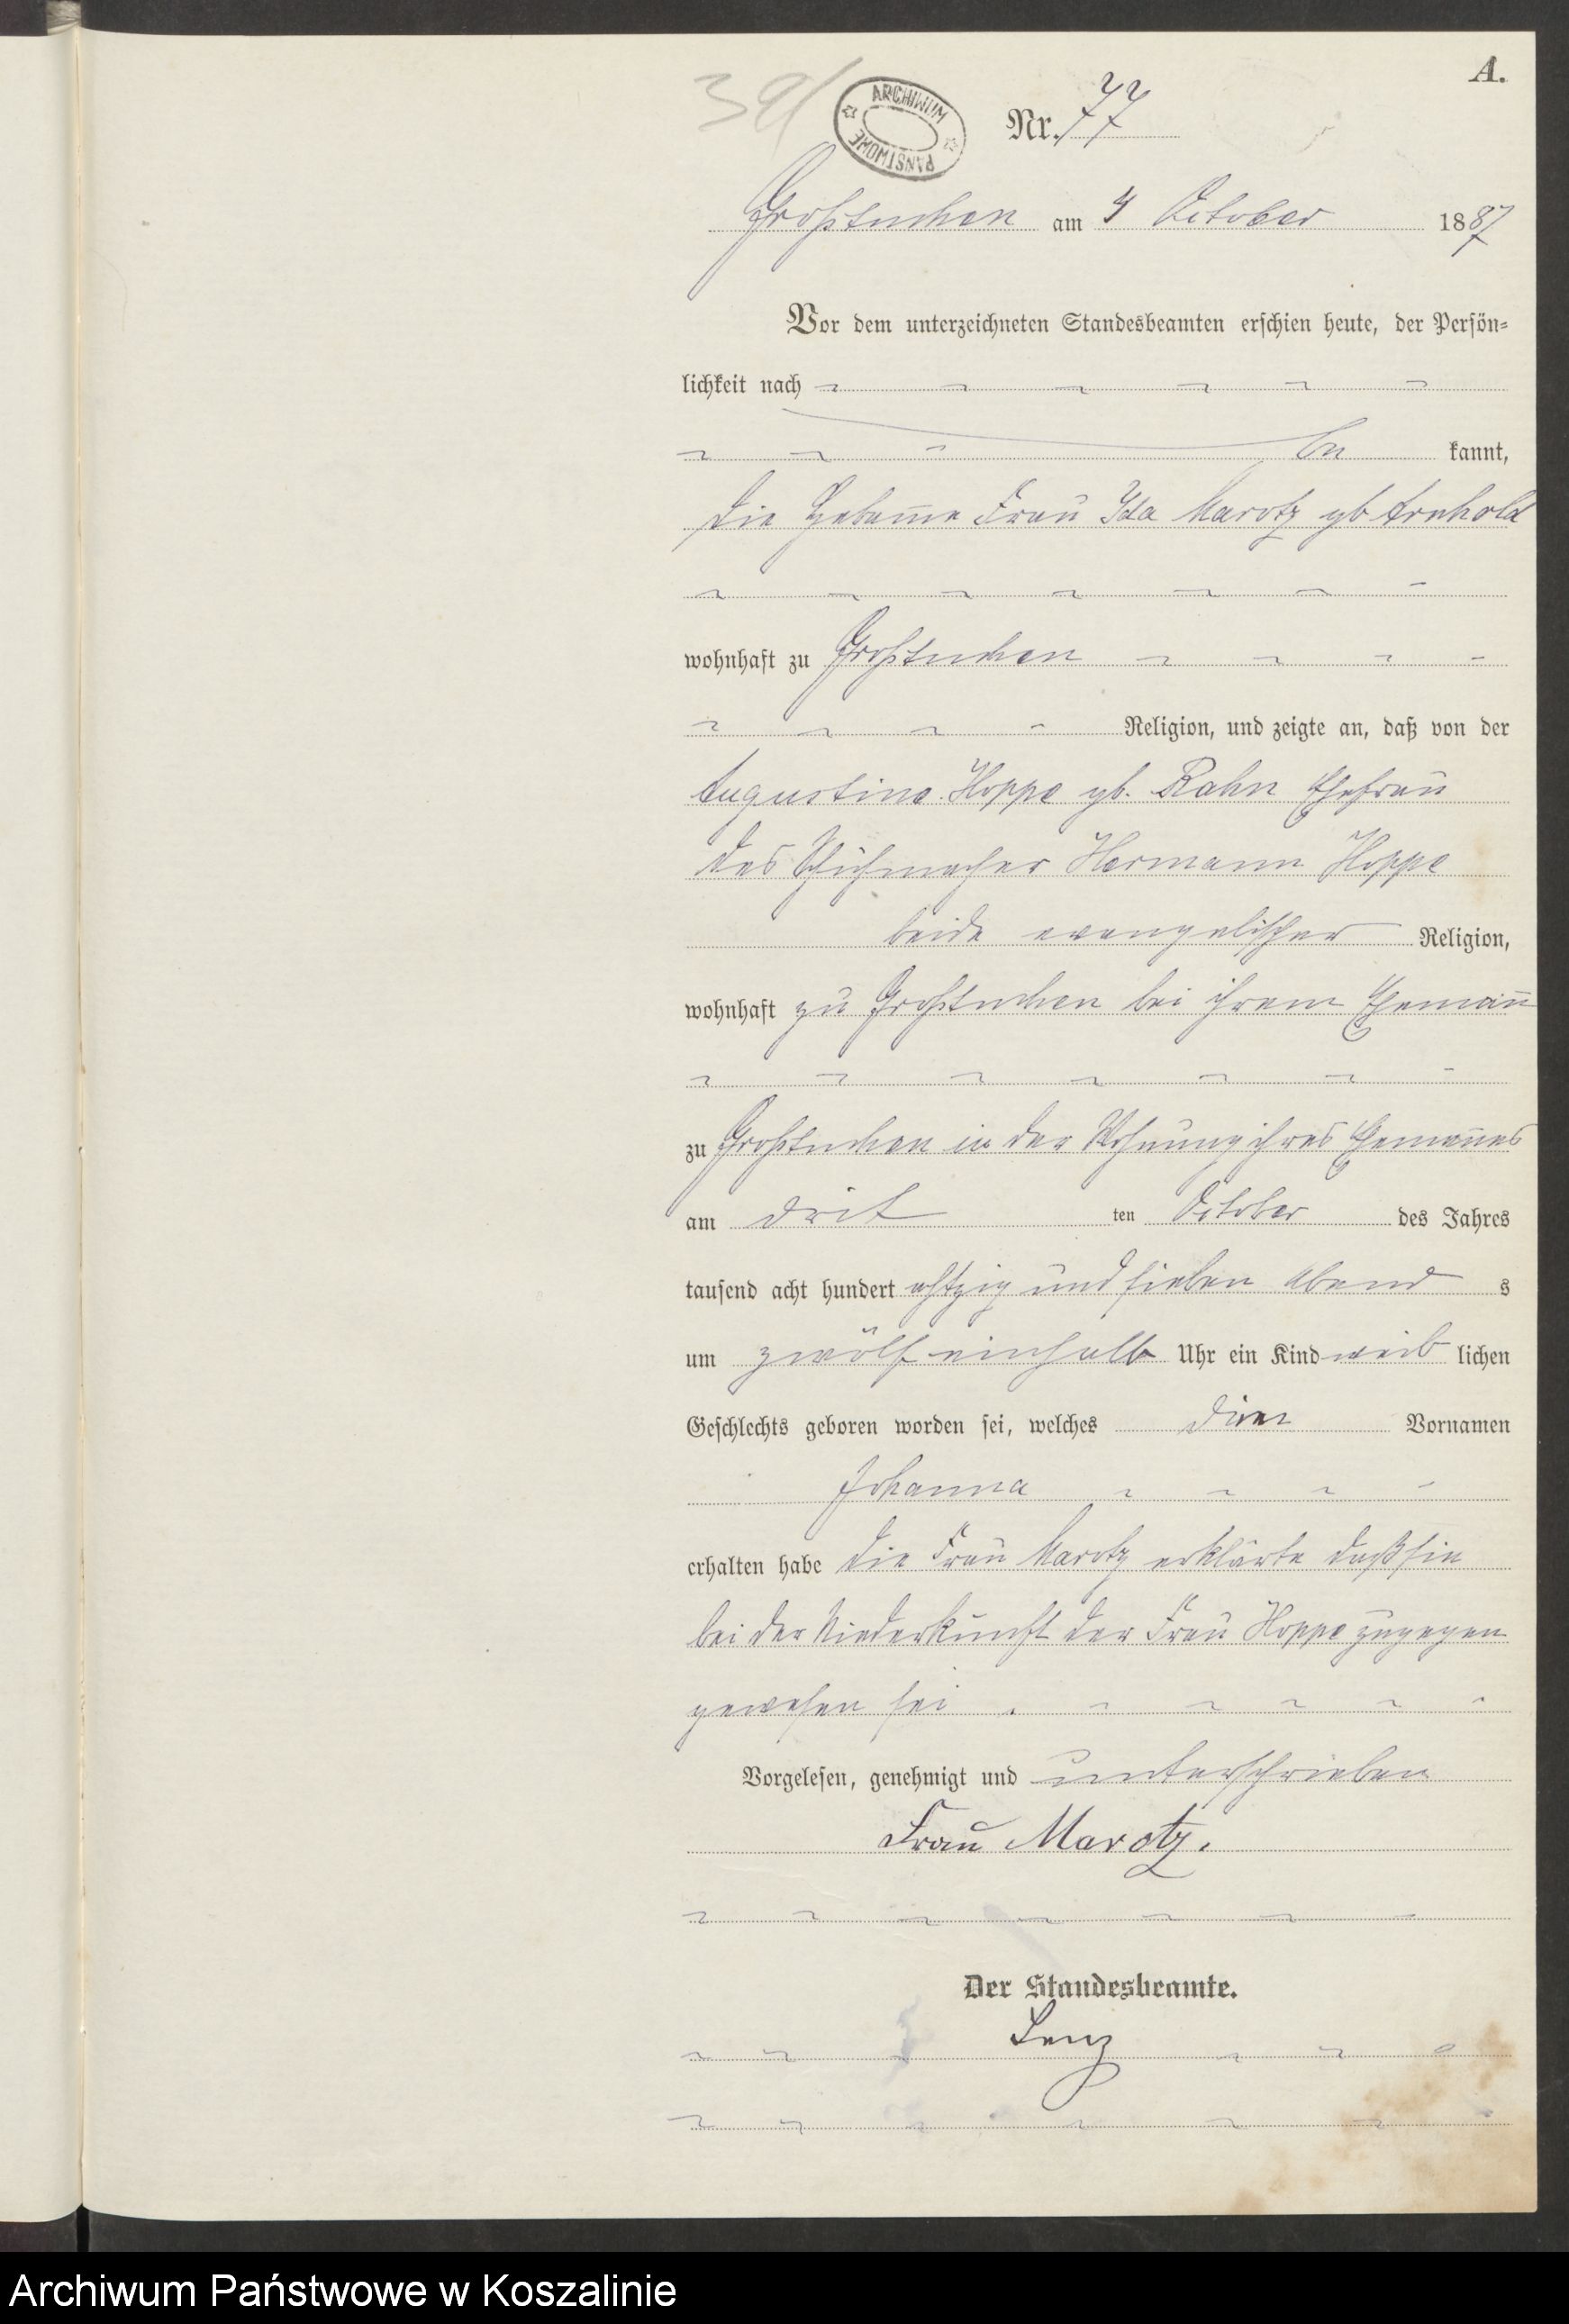 A.
39/
ARCHIWUM PAŃSTWOWE
Nr. 77
Großtuchen am 4 October 1887
Vor dem unterzeichneten Standesbeamten erschien heute, der Persön-
lichkeit nach
be kannt,
die Hebamme Frau Ida Marotz gb Arnhold
wohnhaft zu Großtuchen
Religion, und zeigte an, daß von der
Augustine Hoppe gb. Rahn Ehefrau
des Schuhmacher Hermann Hoppe
beide evangelischer Religion,
wohnhaft zu Großtuchen bei ihrem Ehemann
zu Großtuchen in der Wohnung ihres Ehemannes
am drit ten October des Jahres
tausend acht hundert achtzig und sieben Abend s
um zwölf einhalb Uhr ein Kind weib lichen
Geschlechts geboren worden sei, welches Vornamen
Johanna
erhalten habe die Frau Marotz erklärte daß sie
bei der Niederkunft der Frau Hoppe zugegen
gewesen sei
Vorgelesen, genehmigt und unterschrieben
Frau Marotz.
Der Standesbeamte.
Lenz
Archiwum Państwowe w Koszalinie